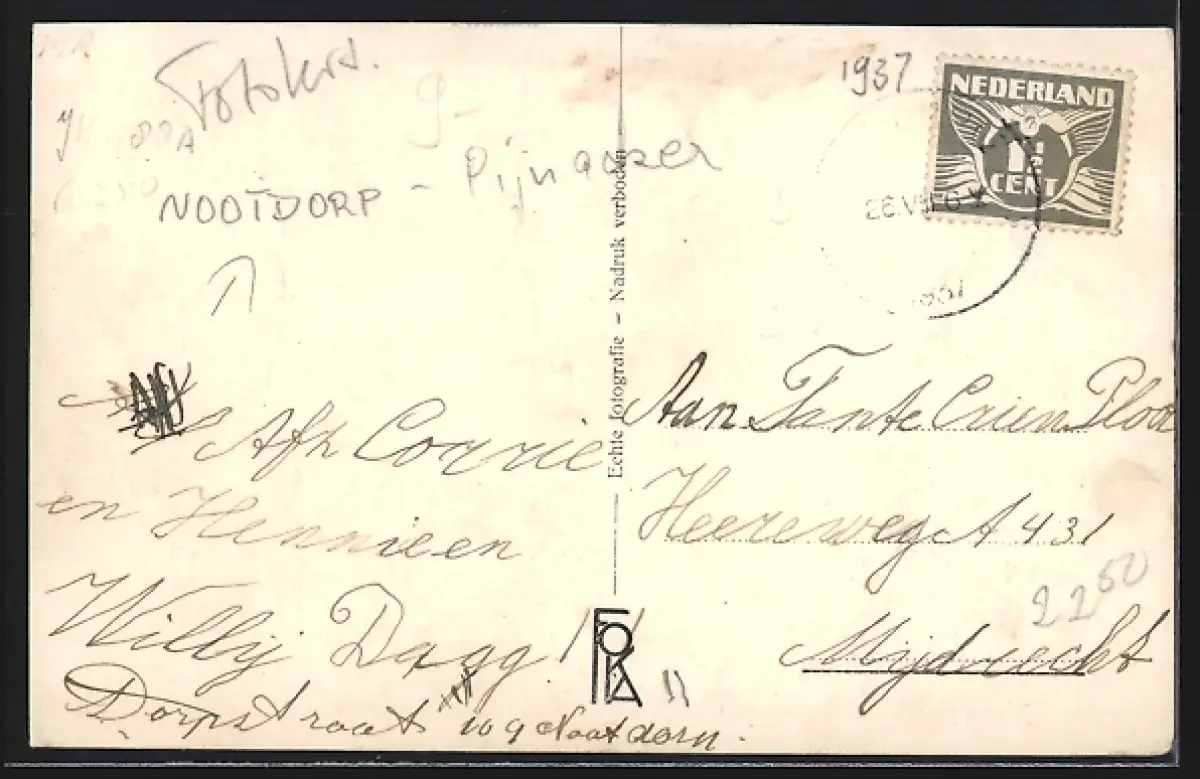 Fotokrt.
1937
NOOTDORP - Pijnacker
NEDERLAND
1½
CENT
26.VII
1937
Echte fotografie - Nadruk verboden
Afz Corrie
en Hennie en
Willy Dagg
Dorpstraat 109 Nootdorp.
FOKA
Aan Tante Crien
Heereweg A 431
Mijdrecht
22 50